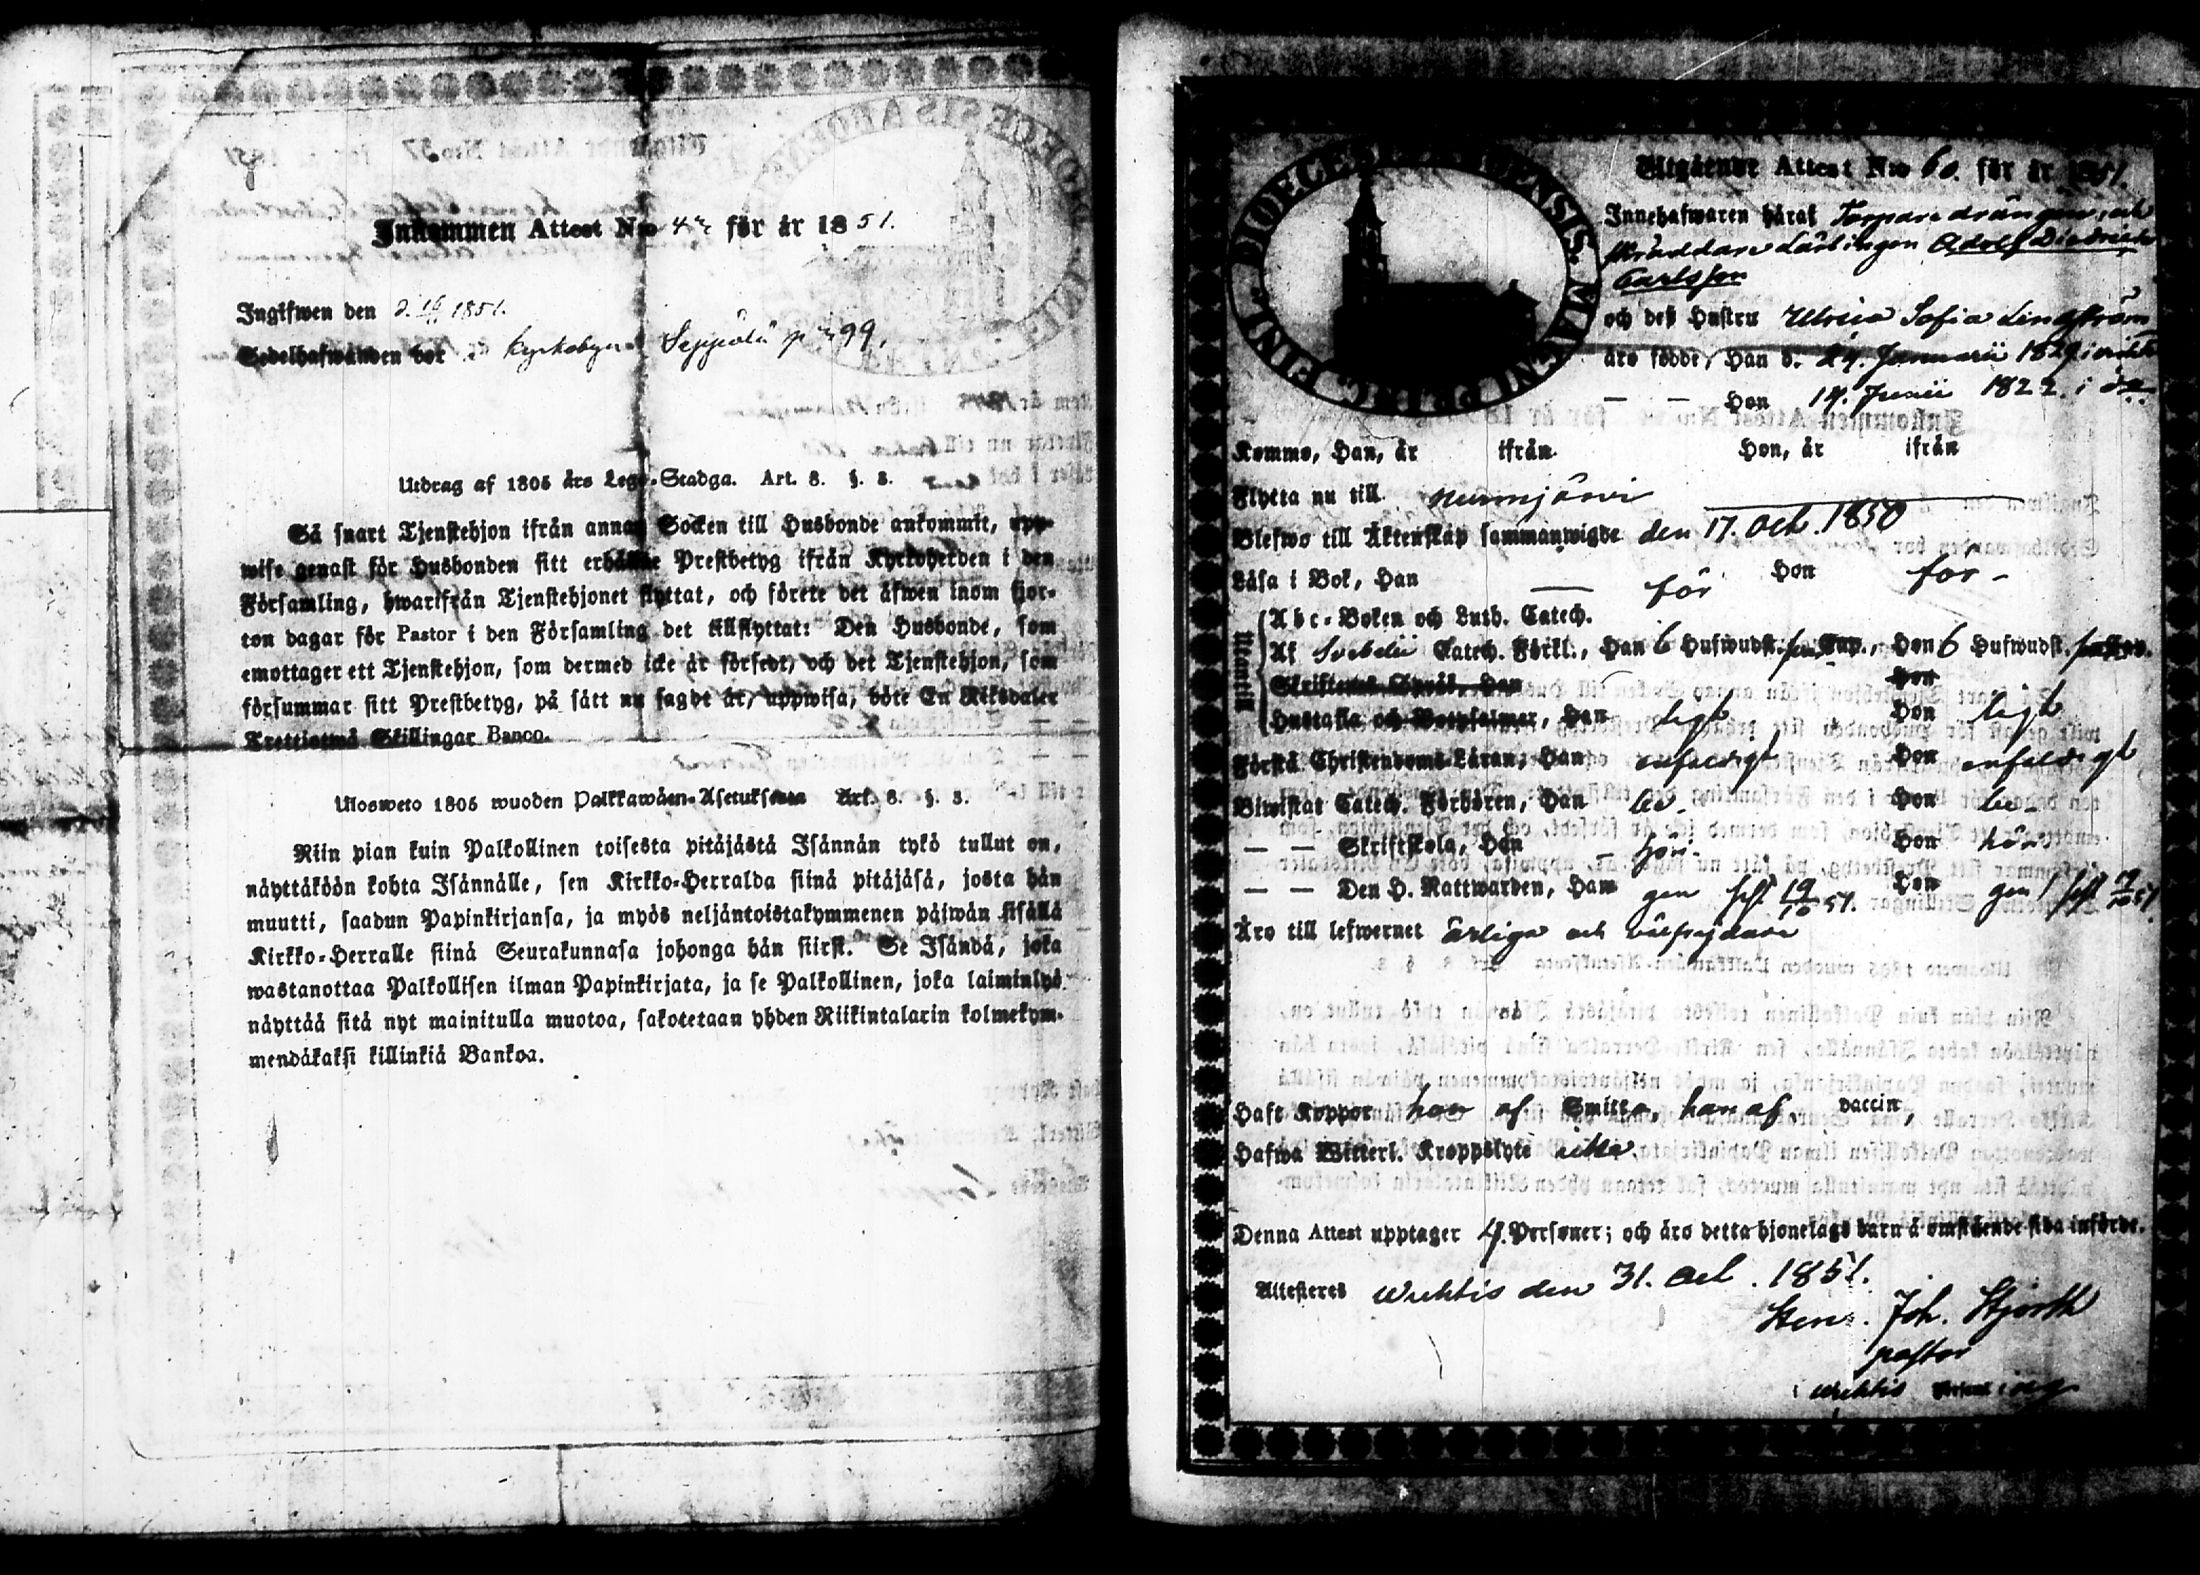 Inkommen Attest N:o 42 för år 1851.
Ingifwen den 1851.
Sedelhafwanden bor i Kyrkobyn Seppälä 99.
Utdrag af 1805 års Lego-Stadga. Art. 8. §. 8.
Så snart Tjenstehjon ifrån annan Socken till Husbonde ankommit, upp-
wise genast för Husbonden sitt erhållne Prestbetyg ifrån Kyrkoherden i den
Församling, hwarifrån Tjenstehjonet flyttat, och förete det äfwen inom fjor-
ton dagar för Pastor i den Församling det tillflyttat: Den Husbonde, som
emottager ett Tjenstehjon, som dermed icke är försedt, och det Tjenstehjon, som
försummar sitt Prestbetyg, på sätt nu sagdt är, uppwisa, böte En Riksdaler
Trettiotwå Skillingar Banco.
Ulosweto 1805 wuoden Palkkawäen-Asetuksesta Art. 8. §. 8.
Niin pian kuin Palkollinen toisesta pitäjästä Isännän tykö tullut on,
näyttäköön kohta Isännälle, sen Kirkko-Herralda siinä pitäjäsä, josta hän
muutti, saadun Papinkirjansa, ja myös neljäntoistakymmenen päiwän sisällä
Kirkko-Herralle siinä Seurakunnasa johonga hän siirst. Se Isändä, joka
wastanottaa Palkollisen ilman Papinkirjata, ja se Palkollinen, joka laiminlyö
näyttää sitä nyt mainitulla muotoa, sakotetaan yhden Riikintalarin kolmekym-
mendäkaksi killinkiä Bankoa.
DIOECESIS ABOENSIS. MAGNI PRINC. FINL.
Utgående Attest N:o 60. för år 1851.
Innehafwaren häraf Torpare drängen och
skräddare Lärlingen Adolf Diedrich
Carlsson
och deß Hustru Ulrica Sofia Lingström
äro födde, Han d. 24. Januarii 1829 i
— — Hon 14. Junii 1822. i
Kommo, Han, år ifrån Hon, år ifrån
Flytta nu till Nurmijärvi
Blefwo till Äktenskap sammanwigde den 17. Oct. 1850
Läsa i Bok, Han — för Hon för -
Utantill
Abc-Boken och Luth. Catech.
Af Svebelii Catech. Förkl., Han 6 Hufwudst. Hon 6 Hufwudst.
Skriftenes Språk, Han Hon
Hustafla och Botpsalmer, Han likt Hon likt
Förstå Christendoms-Läran, Han enfaldigt Hon enfaldigt
Biwistat Catech. Förhören, Han be- Hon be-
— — Skriftskola, Han hör- Hon hör
— — Den H. Nattwarden, Han gen 19/10 51. Hon gen 19/10 51.
Äro till lefwernet ärliga och välfrejdade
Haft Koppor hon af Smitta, han af vaccin,
Hafwa Witterl. Kroppslyte icke.
Denna Attest upptager 4. Personer; och äro detta hjonelags barn å omstående sida införde.
Attesteras Wichtis den 31. Oct. 1851.
Joh. Stjerth
pastor
i Wichtis